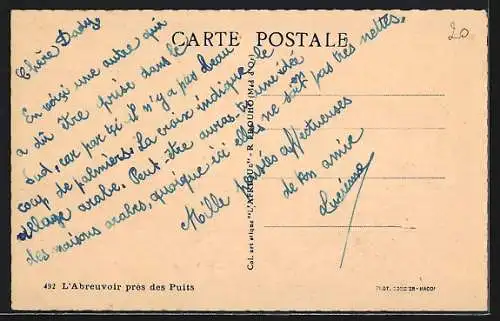 CARTE POSTALE
20
Chère Dady
En voici une autre qui
a dû être prise dans le
Sud, car par ici il n'y a pas beau
coup de palmiers, la croix indique le
village arabe. Peut-être auras-tu une idée
des maisons arabes, quoique ici elles ne sont pas très nettes.
Mille pensées affectueuses
de ton amie
Lucienne
Col. art. etique "L'AFRIQUE" - R. PROUHO (Med. d'Or)
492 L'Abreuvoir près des Puits
PHOT. COMBIER-MACON